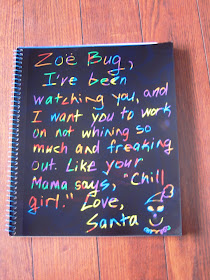 Zoë Bug,
I've been
watching you, and
I want you to work
on not whining so
much and freaking
out. Like your
Mama says, "Chill
girl." Love,
Santa